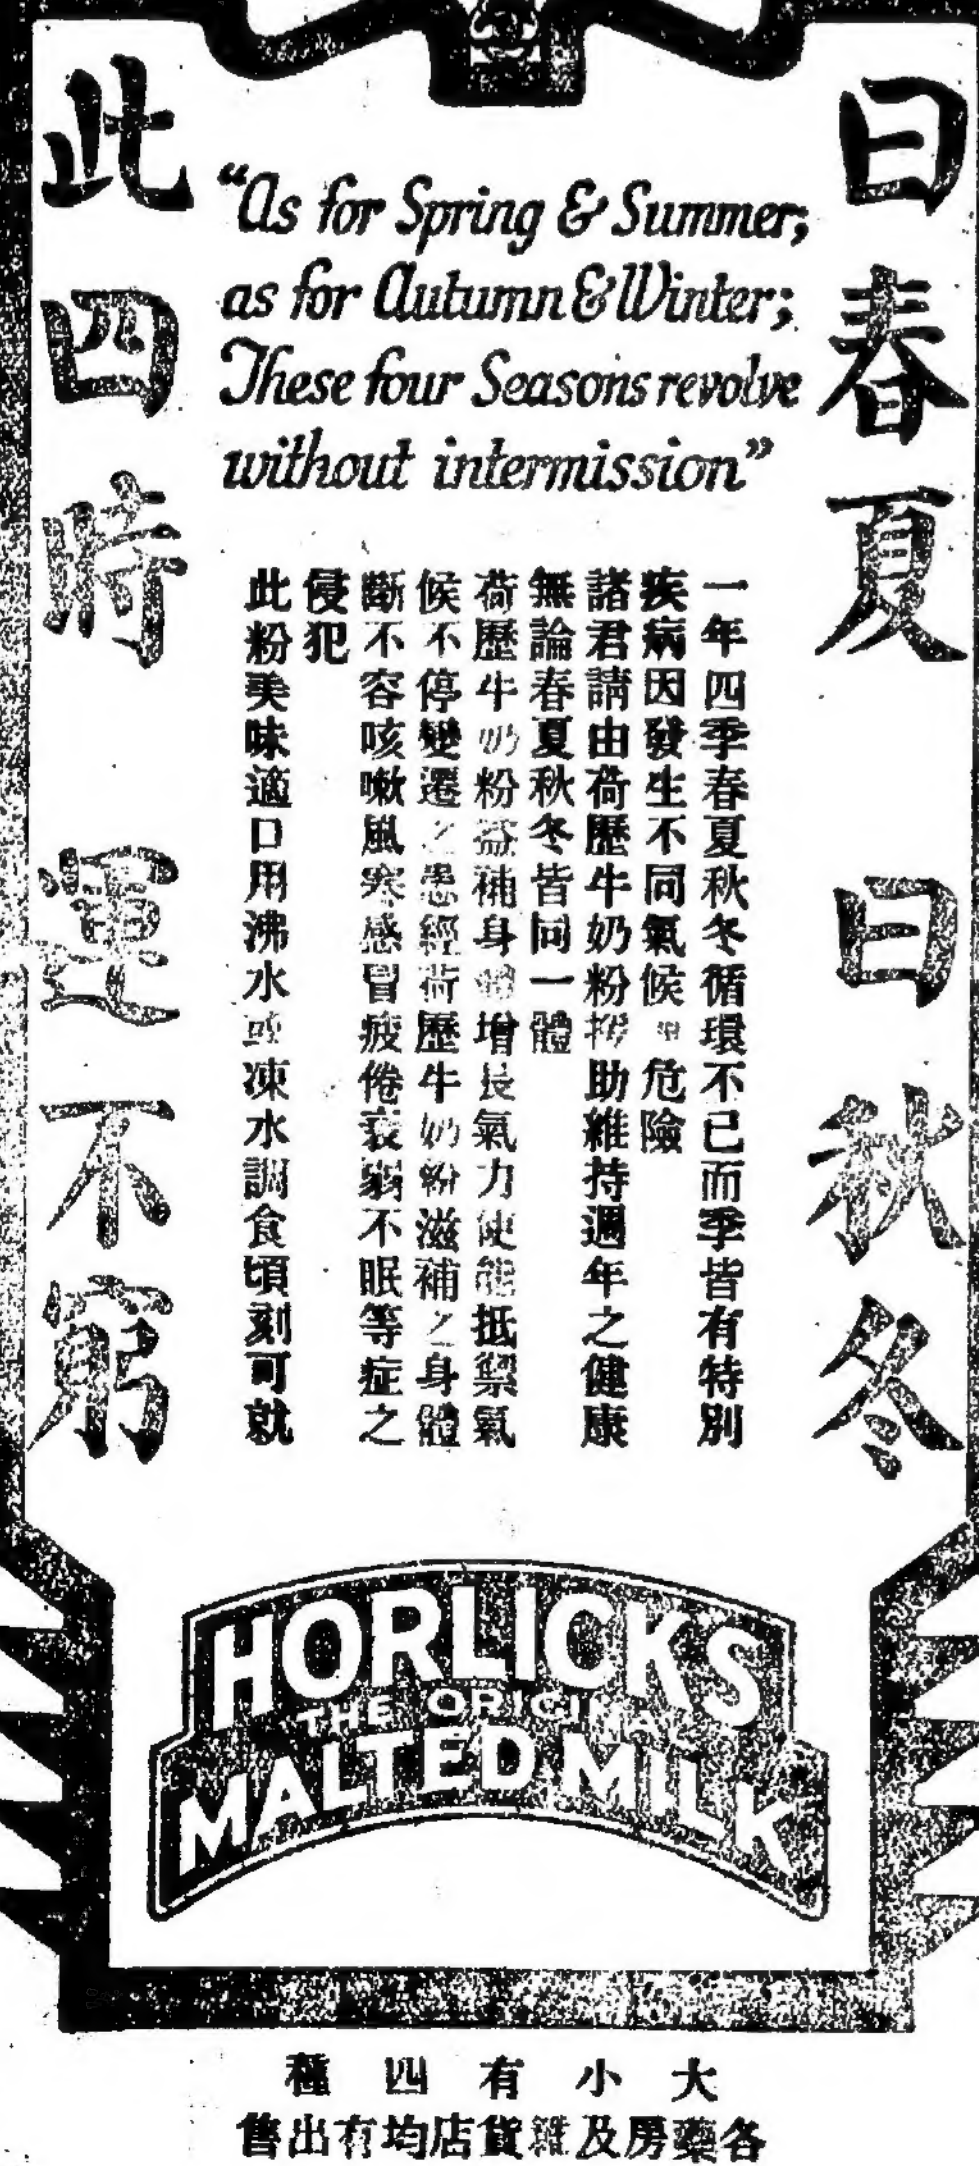 曰春夏 曰秋冬
此四時 運不窮
"As for Spring & Summer;
as for Autumn & Winter;
These four Seasons revolve
without intermission"
一年四季春夏秋冬循環不已而季皆有特別
疾病因發生不同氣候 危險
諸君請由荷歷牛奶粉 助維持週年之健康
無論春夏秋冬皆同一體
荷歷牛奶粉益補身體增長氣力使能抵禦氣
候不停變遷之患經荷歷牛奶粉滋補之身體
斷不容咳嗽風寒感冒疲倦衰弱不眠等症之
侵犯
此粉美味適口用沸水或凍水調食頃刻可就
HORLICKS
THE ORIGINAL
MALTED MILK
大小有四種
各藥房及雜貨店均有出售